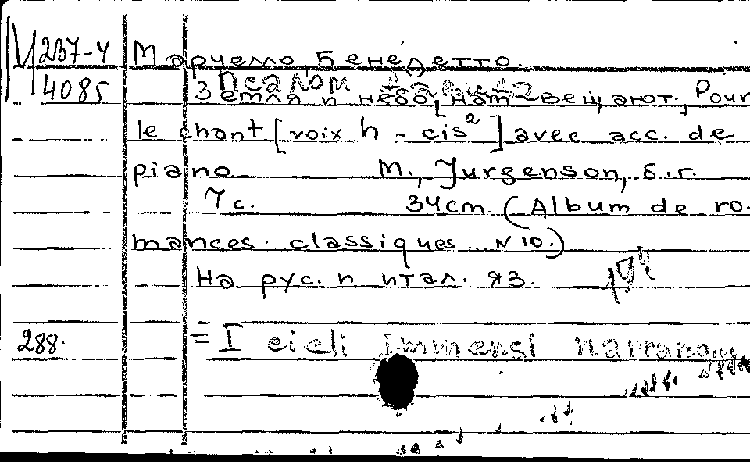 М 237-4
4085
Марчелло Бенедетто.
Псалом
Земля и небо, вещают. Pour
le chant [voix h - cis²] avec acc. de
piano М., Jurgenson, б.г.
7 с. 34 cm. (Album de ro-
mances classiques N 10.)
На рус. и итал. яз.
288.
= I cieli immensi narrano